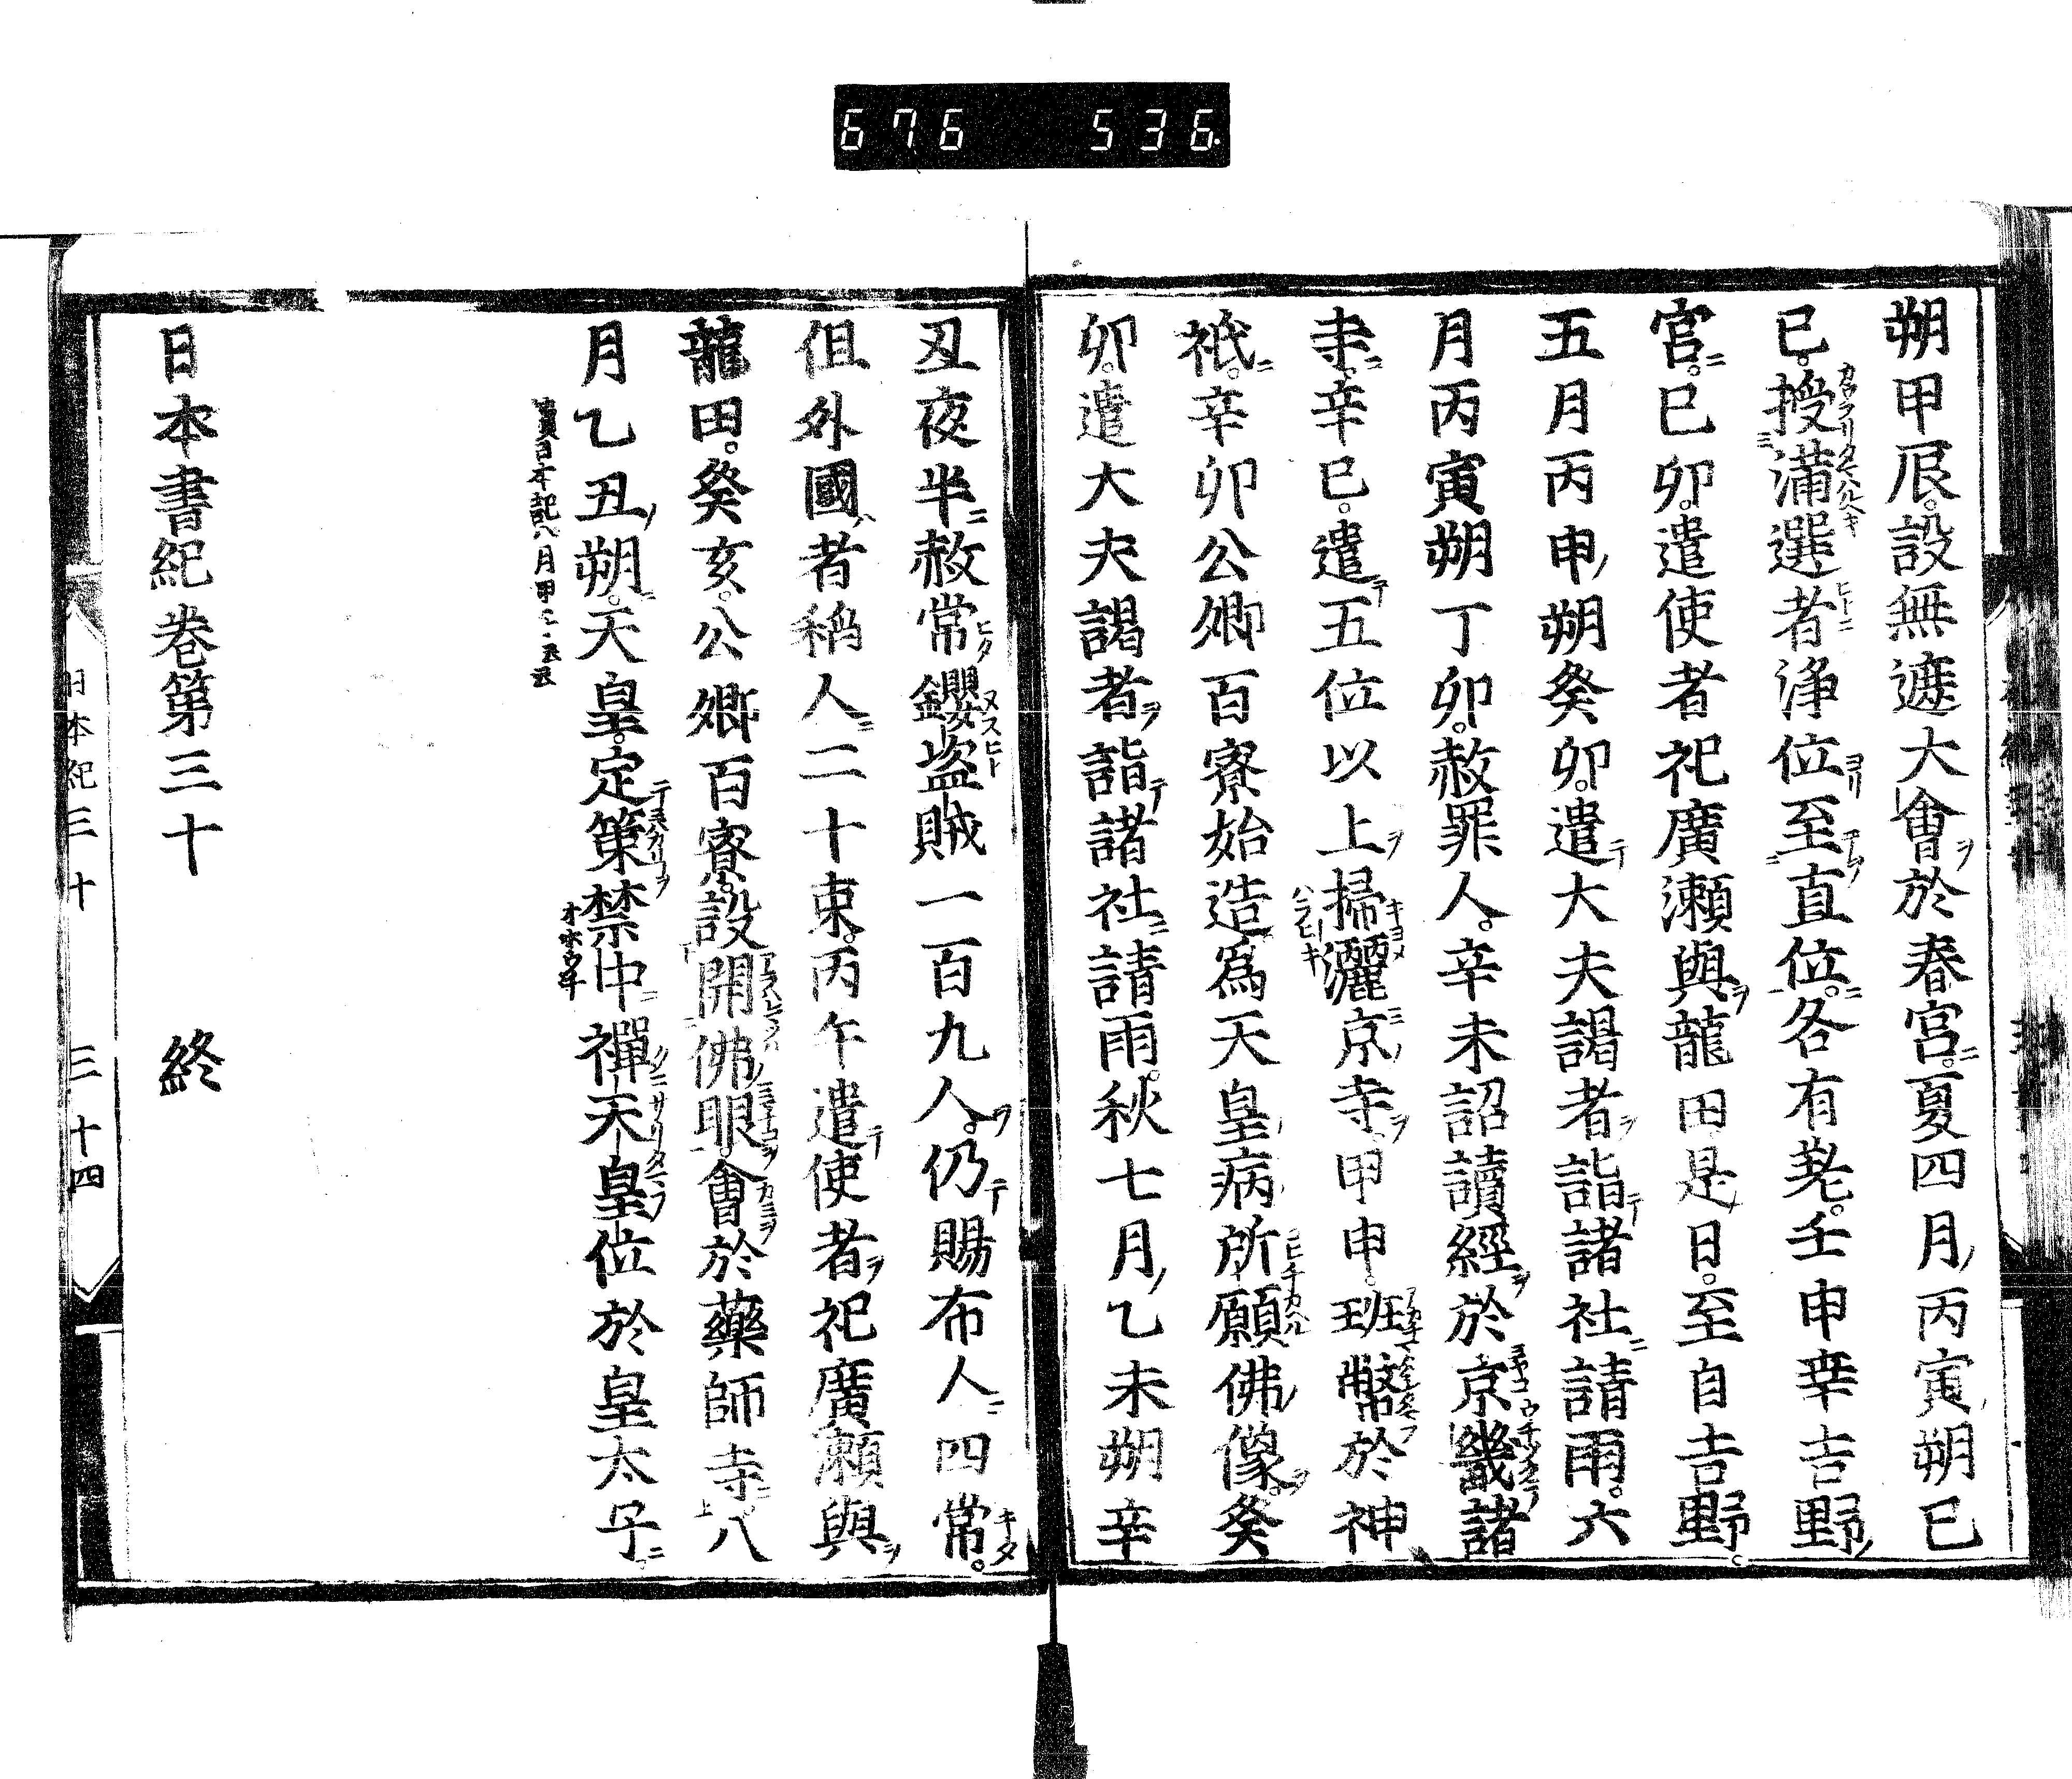 676 536.
朔甲辰。設無遮大會ヲ於春宮ニ。夏四月ノ丙寅ノ朔巳
巳。授滿選者淨位ヨリ至直位ニ。各有差。壬申幸吉野ノ
宮ニ。巳卯。遣使者祀廣瀬與ヲ龍田是日。至自吉野。
五月丙申ノ朔癸卯。遣テ大夫謁者ヲ詣テ諸社ニ請雨。六
月丙寅朔丁卯。赦罪人。辛未詔讀經ヲ於京畿諸
寺ニ。辛巳。遣テ五位以上ヲ掃灑京ノ寺ヲ。甲申。班幣於神
祇ニ。辛卯公卿百寮始造爲天皇ノ病所願佛像ヲ。癸
卯。遣大夫謁者ヲ詣テ諸社ニ請雨。秋七月ノ乙未朔辛
丑夜半ニ赦常鑤盜賊一百九人ヲ。仍テ賜布人ニ四常。
但外國ノ者稱人ニ二十束。丙午遣テ使者ヲ祀廣瀬與ヲ
龍田。癸亥。公卿百寮。設開佛眼。會於藥師寺ニ。八
月乙丑ノ朔。天皇。定策禁中ニ禪天皇位於皇太子ニ
日本書紀卷第三十 終
日本紀三十 三十四